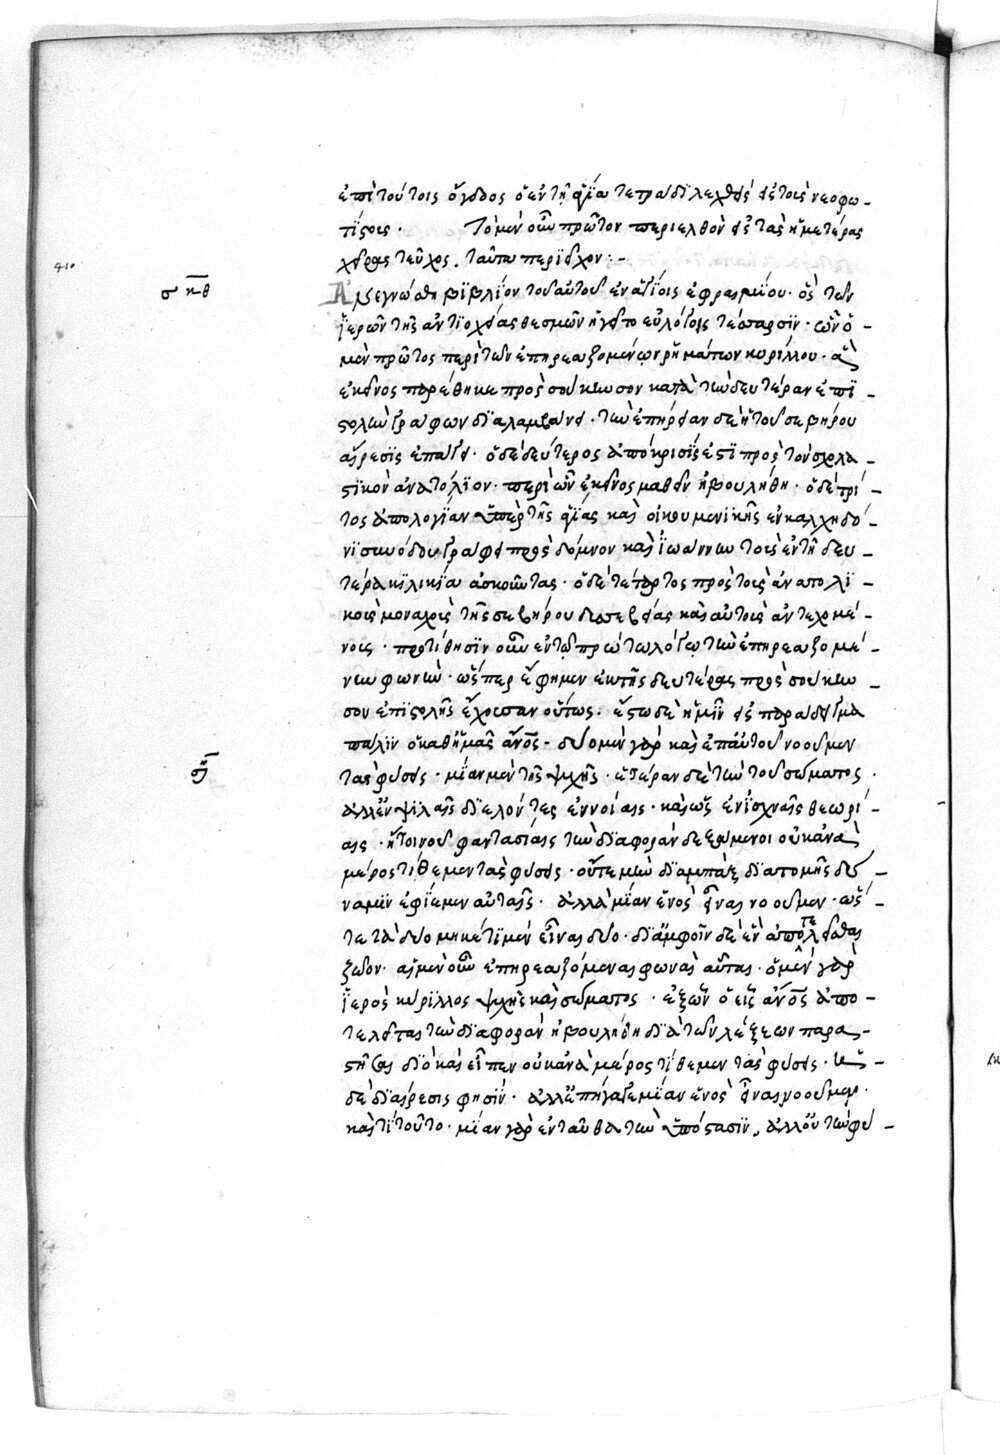 ἐπὶ τούτοις ὄγδοος ὁ ἐν τῇ ἁγίᾳ τετράδι λεχθεὶς εἰς τοὺς νεοφω-
τίστους. Τὸ μὲν οὖν πρῶτον περιελθὸν εἰς τὰς ἡμετέρας
χεῖρας τεῦχος, ταῦτα περιεῖχον:-
410
σκθ
Ἀνεγνώσθη βιβλίον τοῦ αὐτοῦ ἐν ἁγίοις ἐφραιμίου. ὃς τῶν
ἱερῶν τῆς ἀντιοχείας θεσμῶν ἡγεῖτο εὐλόγοις τέσσαρσιν. ὧν ὁ
μὲν πρῶτος περὶ τῶν ἐπηρεαζομένων ῥημάτων κυρίλλου. ἃ
ἐκεῖνος παρέθηκε πρὸς σούκενσον κατὰ τὴν δευτέραν ἐπι-
στολὴν γράφων διαλαμβάνει. τὴν ἐπήρειαν δὲ ἡ τοῦ σεβήρου
αἵρεσις ἐπάγει. ὁ δὲ δεύτερος ἀπόκρισίς ἐστι πρὸς τὸν σχολα-
στικὸν ἀνατόλιον. περὶ ὧν ἐκεῖνος μαθεῖν ἠβουλήθη. ὁ δὲ τρί-
τος ἀπολογίαν ὑπὲρ τῆς ἁγίας καὶ οἰκουμενικῆς ἐν καλχηδό-
νι συνόδου γράφει πρὸς δόμνον καὶ ἰωάννην τοὺς ἐν τῇ δευ-
τέρᾳ κιλικίᾳ ἀσκοῦντας. ὁ δὲ τέταρτος πρὸς τοὺς ἀνατολι-
κοὺς μοναχοὺς τῆς σεβήρου δυσσεβείας καὶ αὐτοὺς ἀντεχομέ-
νους. προτίθησιν οὖν ἐν τῷ πρώτῳ λόγῳ τὴν ἐπηρεαζομέ-
νην φωνὴν. ὥσπερ ἔφημεν ἐκ τῆς δευτέρας πρὸς σούκεν-
σον ἐπιστολῆς ἔχουσαν οὕτως. ἔστω δὲ ἡμῖν εἰς παράδειγμα
πάλιν ὁ καθ' ἡμᾶς ἄνος. δύο μὲν γὰρ καὶ ἐπ' αὐτοῦ νοοῦμεν
τὰς φύσεις. μίαν μὲν τῆς ψυχῆς. ἑτέραν δὲ τὴν τοῦ σώματος.
ἀλλ' ἐν ψιλαῖς διελόντες ἐννοίαις. καὶ ὡς ἐν ἰσχναῖς θεωρί-
αις. ἤτοι νοῦ φαντασίαις τὴν διαφορὰν δεξάμενοι οὐκ ἀνὰ
μέρος τίθεμεν τὰς φύσεις. οὔτε μὴν διαμπὰξ διατομῆς δύ-
ναμιν ἐφίεμεν αὐταῖς. ἀλλὰ μίαν ἑνὸς εἶναι νοοῦμεν. ὥσ-
τε τὰ δύο μηκέτι μὲν εἶναι δύο. δι' ἀμφοῖν δὲ ἓν ἀποτελεῖσθαι
ζῷον. αἱ μὲν οὖν ἐπηρεαζόμεναι φωναὶ αὗται. ὁ μὲν γὰρ
ἱερὸς κύριλλος ψυχῆς καὶ σώματος. ἐξ ὧν ὁ εἷς ἄνος ἀπο-
τελεῖται τὴν διαφορὰν ἠβουλήθη διὰ τῶν λέξεων παρα-
στῆσαι διὸ καὶ εἶπεν οὐκ ἀνὰ μέρος τίθεμεν τὰς φύσεις.
δὲ διαίρεσις φησίν. ἀλλ' ἐπήγαγε μίαν ἑνὸς εἶναι νοοῦμεν.
καὶ τί τοῦτο. μίαν γὰρ ἐνταῦθα τὴν ὑπόστασιν, ἀλλ' οὐ τὴν φύ-